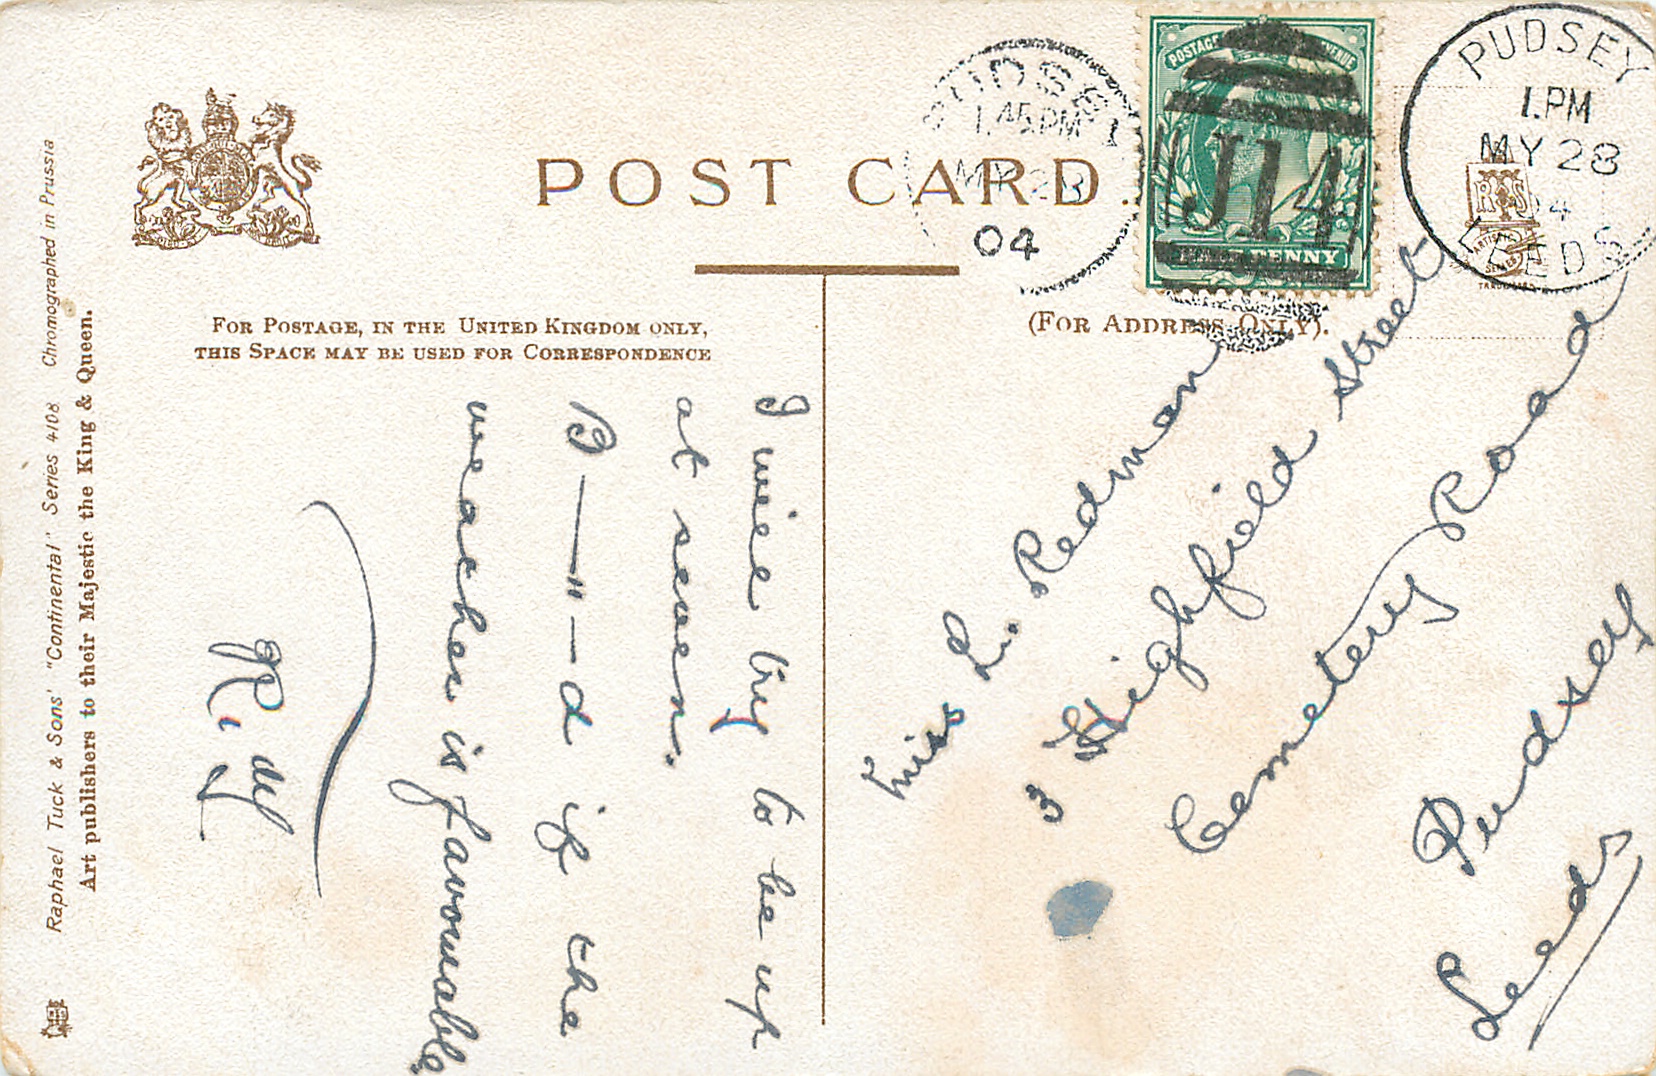 POST CARD.
FOR POSTAGE, IN THE UNITED KINGDOM ONLY,
THIS SPACE MAY BE USED FOR CORRESPONDENCE
(FOR ADDRESS ONLY).
PUDSEY
1.45PM
MY 28
04
POSTAGE
J14
PENNY
PUDSEY
1.PM
MY 28
04
LEEDS
I will try to be up
at seven.
B — " — d if the
weather is favourable
Miss L. Redman
3 Highfield Street
Cemetery Road
Pudsey
Leeds
Raphael Tuck & Sons' "Continental" Series 4108 Chromographed in Prussia
Art publishers to their Majestic the King & Queen.